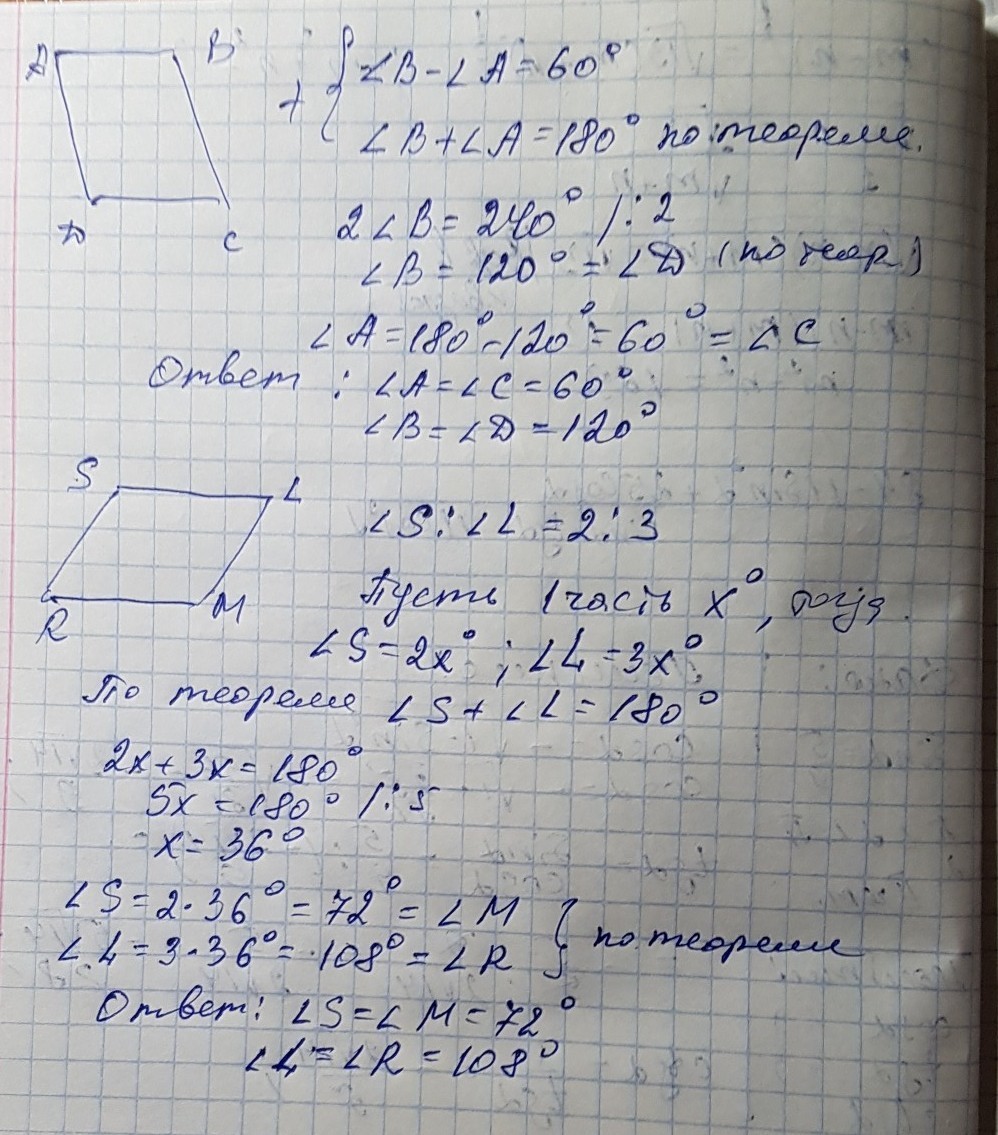 A B
D C
+ { ∠B - ∠A = 60°
∠B + ∠A = 180° по теореме.
2∠B = 240° /:2
∠B = 120° = ∠D (по теор.)
∠A = 180° - 120° = 60° = ∠C
Ответ: ∠A = ∠C = 60°
∠B = ∠D = 120°
S L
R M
∠S : ∠L = 2 : 3
Пусть 1 часть x°, тогда
∠S = 2x° ; ∠L = 3x°
По теореме ∠S + ∠L = 180°
2x + 3x = 180°
5x = 180° /:5
x = 36°
∠S = 2·36° = 72° = ∠M
∠L = 3·36° = 108° = ∠R } по теореме
Ответ: ∠S = ∠M = 72°
∠L = ∠R = 108°